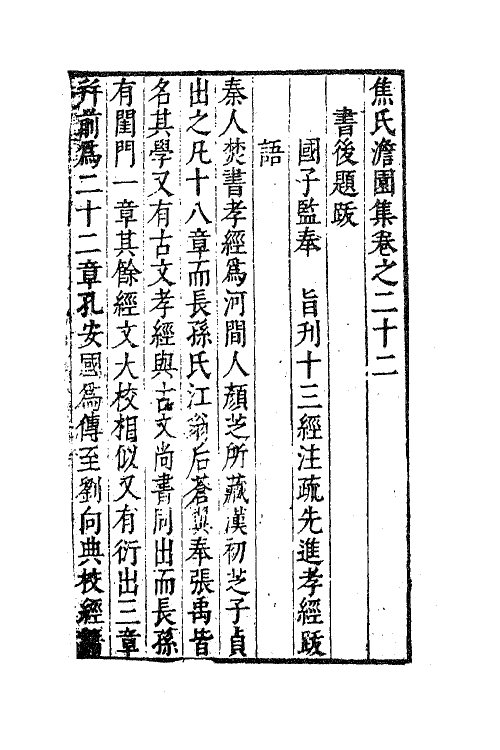 焦氏澹園集卷之二十二
書後題䟦
國子監奉　旨刊十三經注疏先進孝經䟦
語
秦人焚書孝經爲河間人顏芝所藏漢初芝子貞
出之凡十八章而長孫氏江翁后蒼翼奉張禹皆
名其學又有古文孝經與古文尚書同出而長孫
有閨門一章其餘經文大校相似又有衍出三章
幷前爲二十二章孔安國爲傳至劉向典校經籍